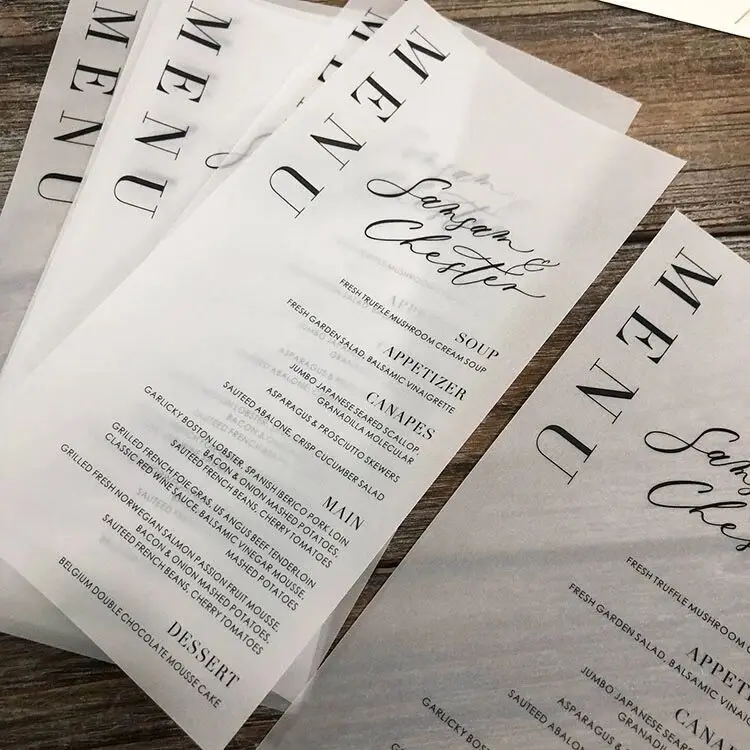 MENU
MENU
MENU
Samsam &
Chester
SOUP
FRESH TRUFFLE MUSHROOM CREAM SOUP
APPETIZER
FRESH GARDEN SALAD, BALSAMIC VINAIGRETTE
CANAPES
JUMBO JAPANESE SEARED SCALLOP,
GRANADILLA MOLECULAR
ASPARAGUS & PROSCIUTTO SKEWERS
SAUTEED ABALONE, CRISP CUCUMBER SALAD
MAIN
GARLICKY BOSTON LOBSTER, SPANISH IBERICO PORK LOIN
BACON & ONION MASHED POTATOES,
SAUTEED FRENCH BEANS, CHERRY TOMATOES
GRILLED FRENCH FOIE GRAS, US ANGUS BEEF TENDERLOIN
CLASSIC RED WINE SAUCE, BALSAMIC VINEGAR MOUSSE,
MASHED POTATOES
GRILLED FRESH NORWEGIAN SALMON PASSION FRUIT MOUSSE,
BACON & ONION MASHED POTATOES,
SAUTEED FRENCH BEANS, CHERRY TOMATOES
DESSERT
BELGIUM DOUBLE CHOCOLATE MOUSSE CAKE
MENU
Sams
Ches
FRESH TRUFFLE MUSHROOM
APPET
FRESH GARDEN SALAD, BALSAMIC VINAIG
CANA
JUMBO JAPANESE SEARED
GRANADILLA
ASPARAGUS & PROS
SAUTEED ABALONE, CRISP
GARLICKY BOSTON LOBSTER, SP